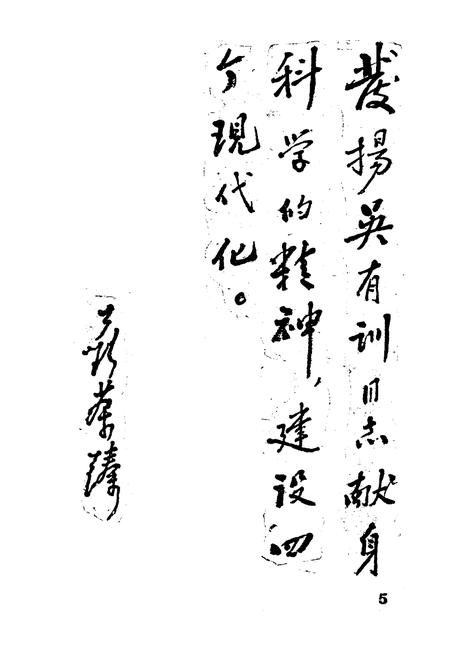 發揚吳有训同志献身
科学的精神，建设四
个現代化。
聂荣臻
5